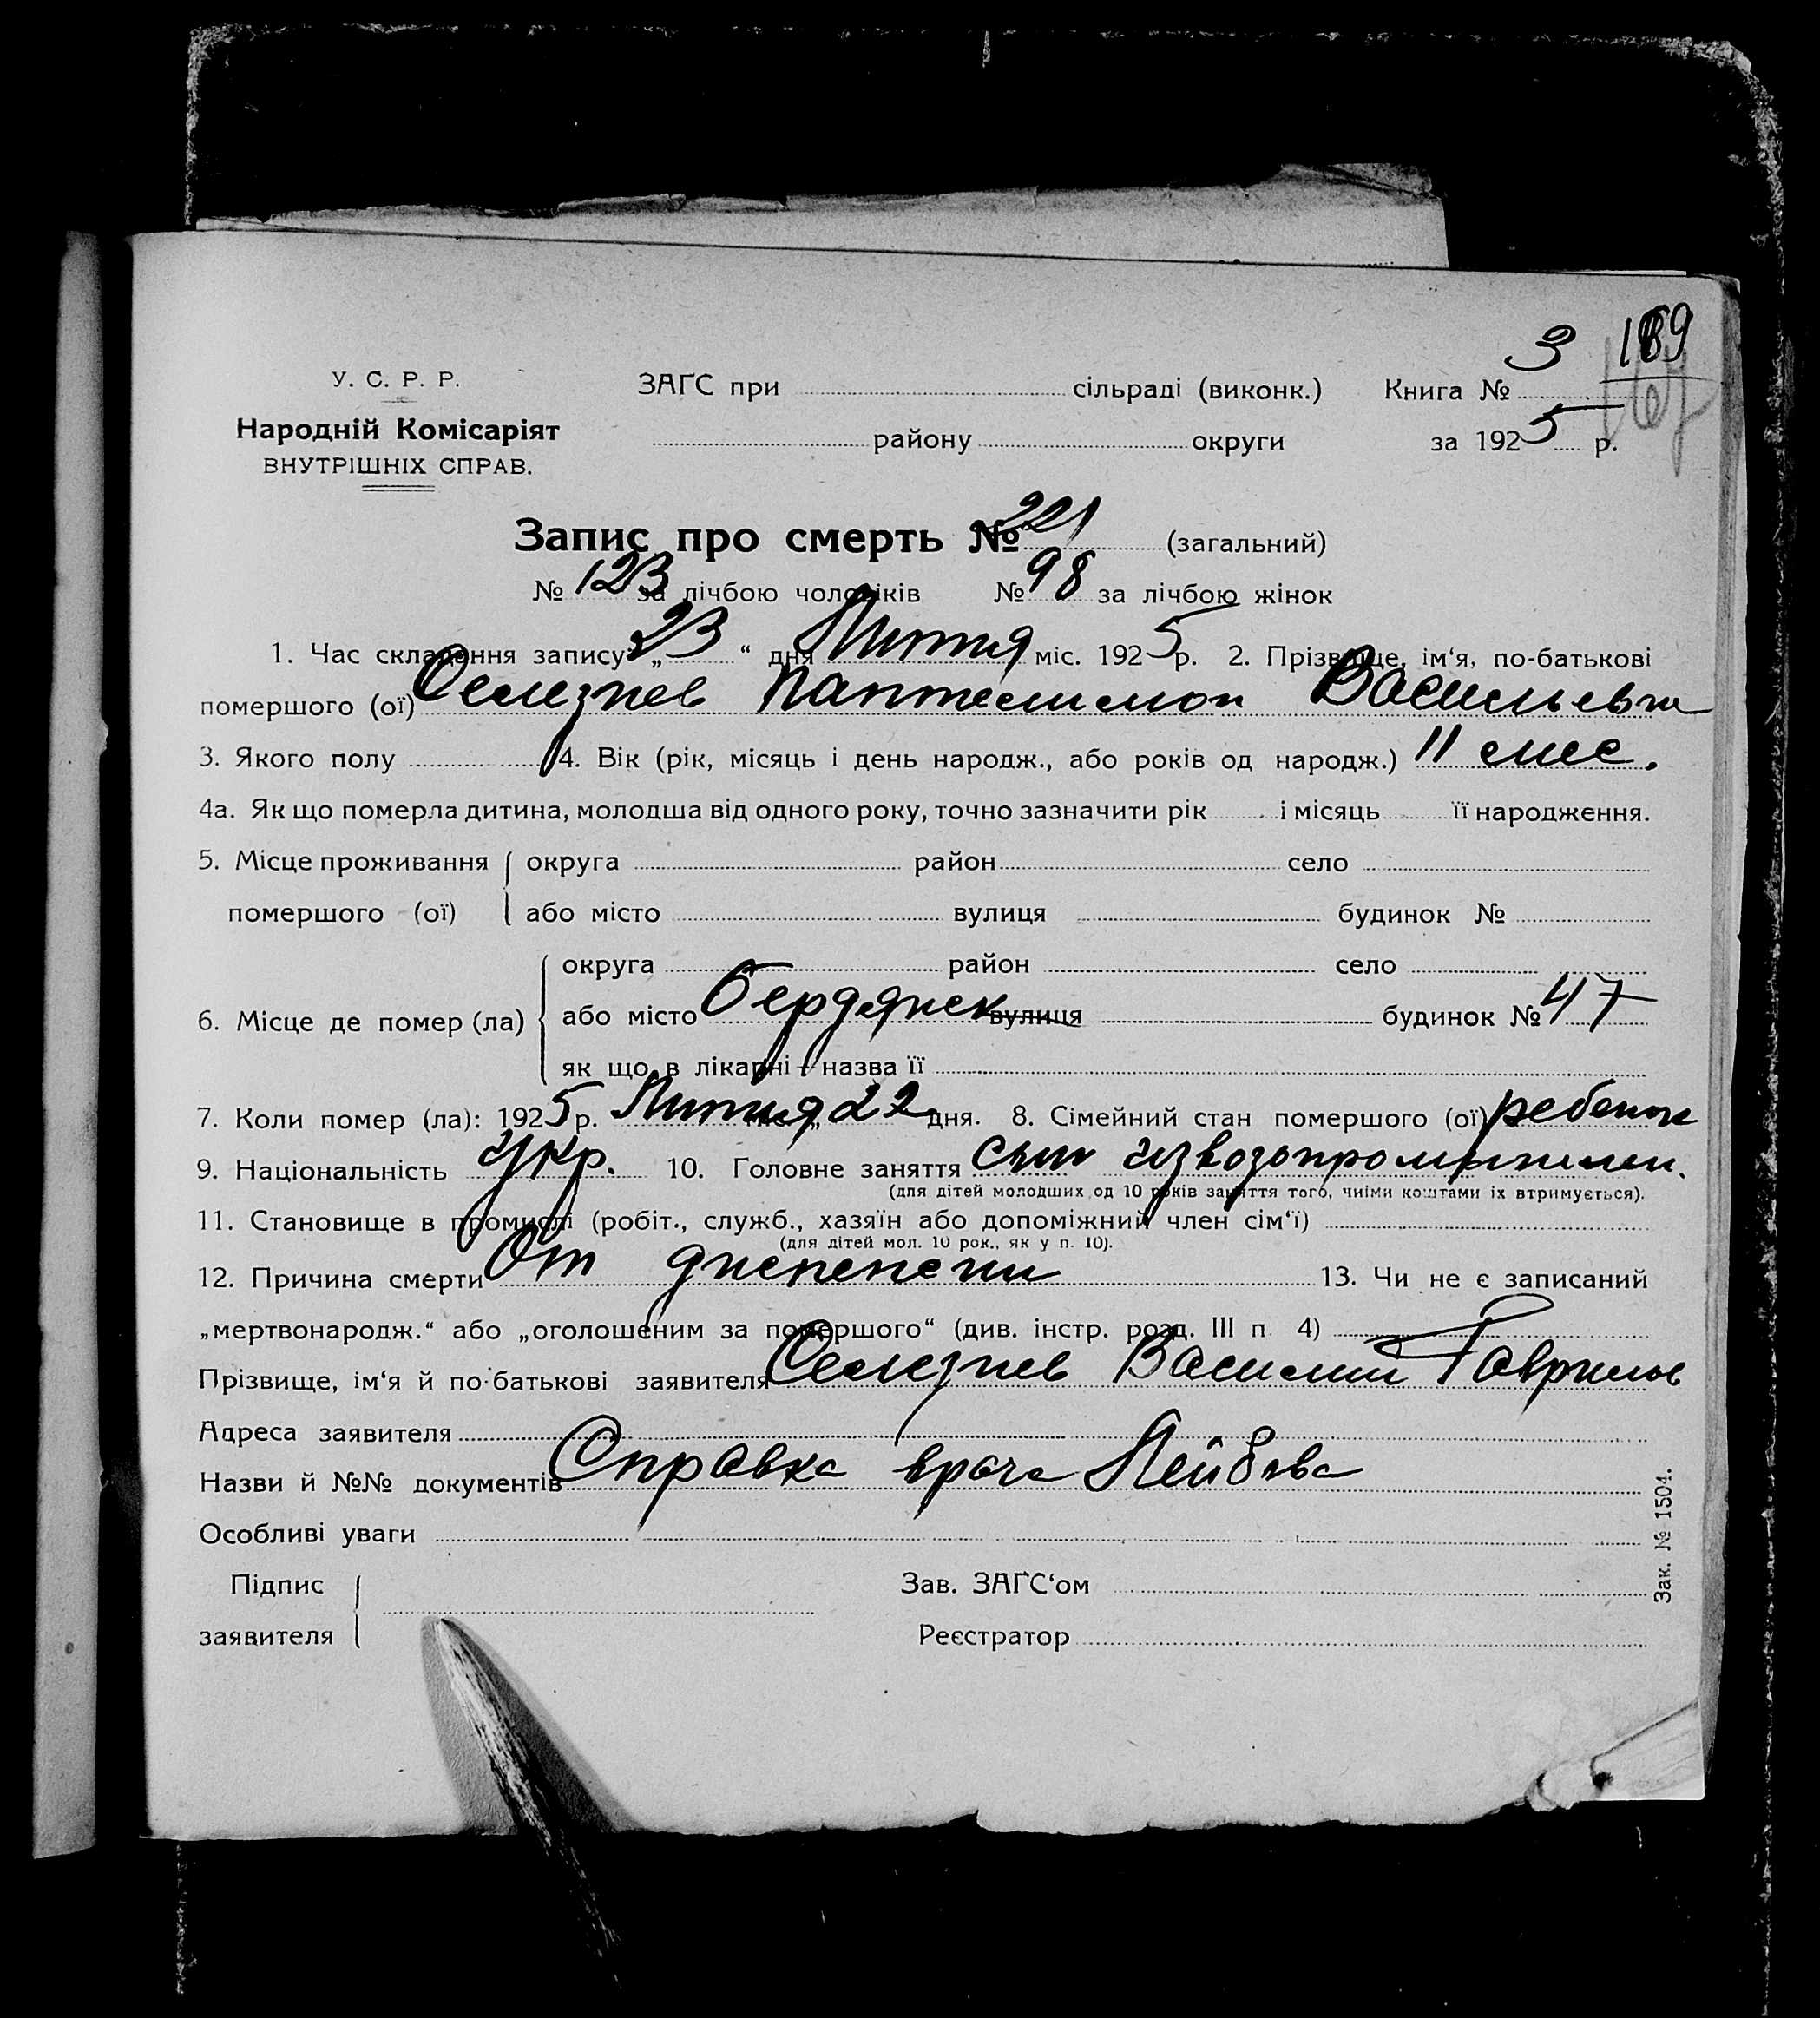 3 169
167
У. С. Р. Р. ЗАҐС при сільраді (виконк.) Книга №
Народній Комісаріят району округи за 1925 р.
ВНУТРІШНІХ СПРАВ.
Запис про смерть № 221 (загальний)
№ 123 за лічбою чоловіків № 98 за лічбою жінок
1. Час складання запису „23“ дня Липня міс. 1925 р. 2. Прізвище, ім‘я, по-батькові
помершого (ої) Селезнев Пантелимон Васильевич
3. Якого полу 4. Вік (рік, місяць і день народж., або років од народж.) 11 мес.
4а. Як що померла дитина, молодша від одного року, точно зазначити рік і місяць її народження.
5. Місце проживання округа район село
помершого (ої) або місто вулиця будинок №
округа район село
6. Місце де помер (ла) або місто Бердянск вулиця будинок № 47
як що в лікарні – назва її
7. Коли помер (ла): 1925 р. Липня „22 дня. 8. Сімейний стан помершого (ої) ребенок
9. Національність Укр. 10. Головне заняття сын извозопромышлен.
(для дітей молодших од 10 років заняття того, чиїми коштами їх втримується).
11. Становище в промислі (робіт., служб., хазяїн або допоміжний член сім‘ї)
(для дітей мол. 10 рок., як у п. 10).
12. Причина смерти От диспепсии 13. Чи не є записаний
„мертвонародж.“ або „оголошеним за помершого“ (див. інстр. розд. III п 4)
Прізвище, ім‘я й по-батькові заявителя Селезнев Василий Гаврилов
Адреса заявителя
Назви й №№ документів Справка врача
Особливі уваги
Підпис Зав. ЗАҐС‘ом
заявителя Реєстратор
Зак. № 1504.